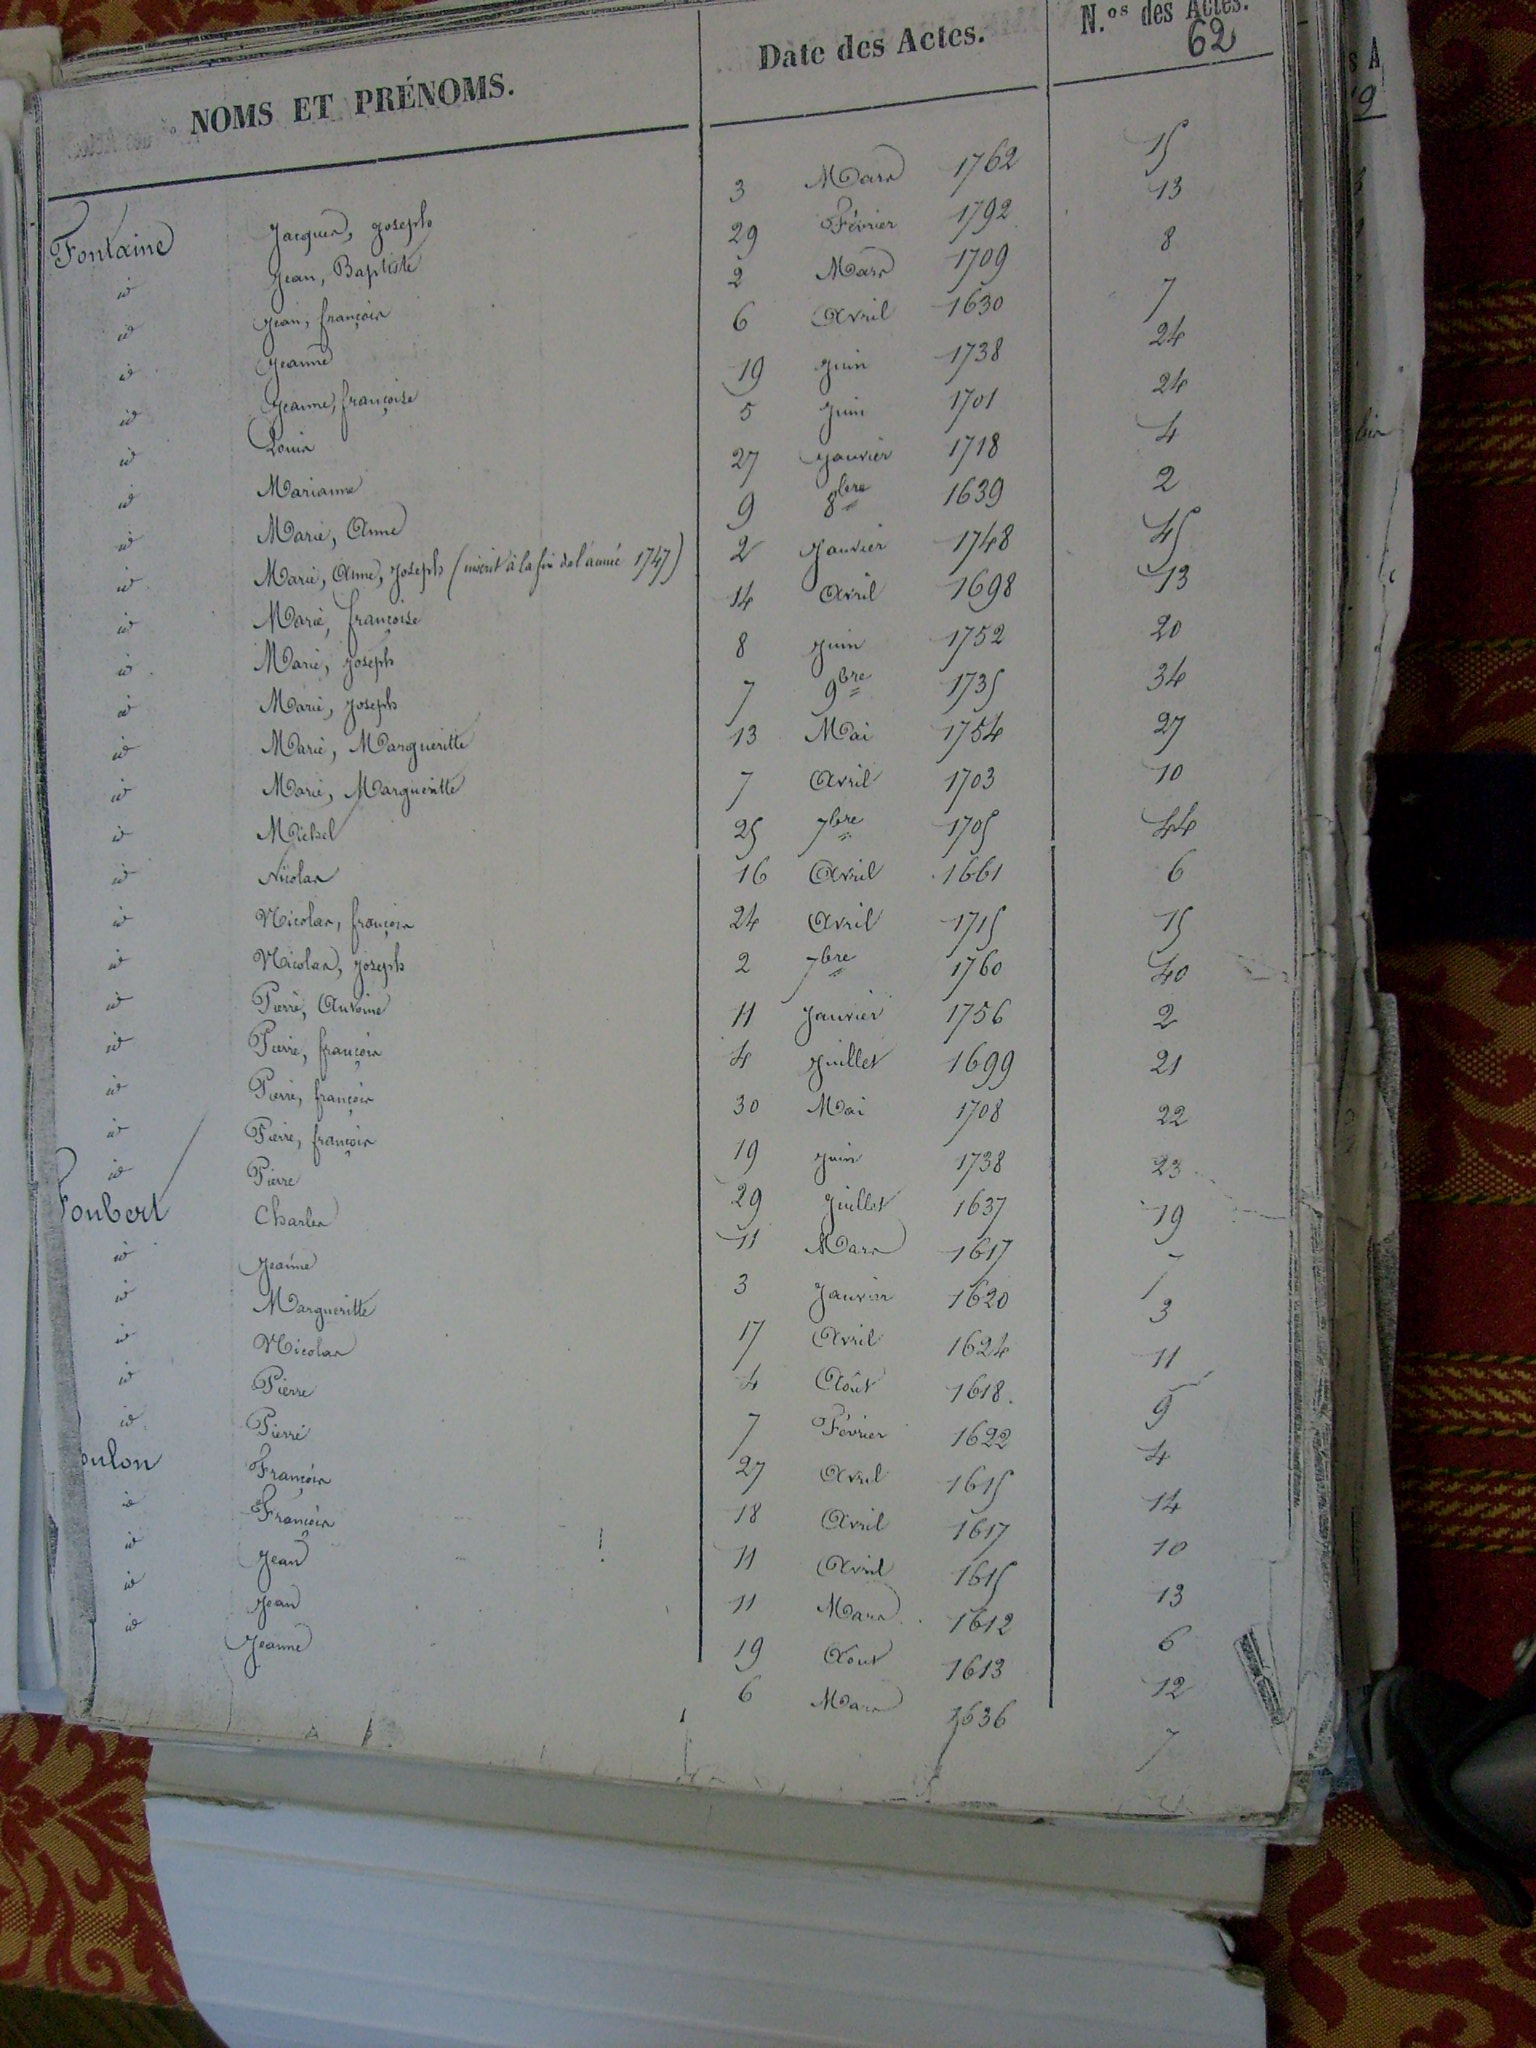 NOMS ET PRÉNOMS. Date des Actes. N.os des Actes.
62
Fontaine Jacques, Joseph 3 Mars 1762 15
id Jean, Baptiste 29 Février 1792 13
id Jean, françois 2 Mars 1709 8
id Jeanne 6 Avril 1630 7
id Jeanne, françoise 19 Juin 1738 24
id Louis 5 Juin 1701 24
id Marianne 27 Janvier 1718 4
id Marie, Anne 9 8bre 1639 2
id Marie, Anne, Joseph (inscrit à la fin de l'année 1747) 2 Janvier 1748 45
id Marie, françoise 14 Avril 1698 13
id Marie, Joseph 8 Juin 1752 20
id Marie, Joseph 7 9bre 1735 34
id Marie, Margueritte 13 Mai 1754 27
id Marie, Margueritte 7 Avril 1703 10
id Michel 25 7bre 1705 44
id Nicolas 16 Avril 1661 6
id Nicolas, françois 24 Avril 1715 15
id Nicolas, Joseph 2 7bre 1760 40
id Pierre, Antoine 11 Janvier 1756 2
id Pierre, françois 4 Juillet 1699 21
id Pierre, françois 30 Mai 1708 22
id Pierre, françois 19 Juin 1738 23
id Pierre 29 Juillet 1637 19
Foubert Charles 11 Mars 1617 7
id Jeanne 3 Janvier 1620 3
id Margueritte 17 Avril 1624 11
id Nicolas 4 Août 1618 9
id Pierre 7 Février 1622 4
id Pierre 27 Avril 1615 14
oulon François 18 Avril 1617 10
id François 11 Avril 1615 13
id Jean 11 Mars 1612 6
id Jean 19 Aout 1613 12
id Jeanne 6 Mars 1636 7